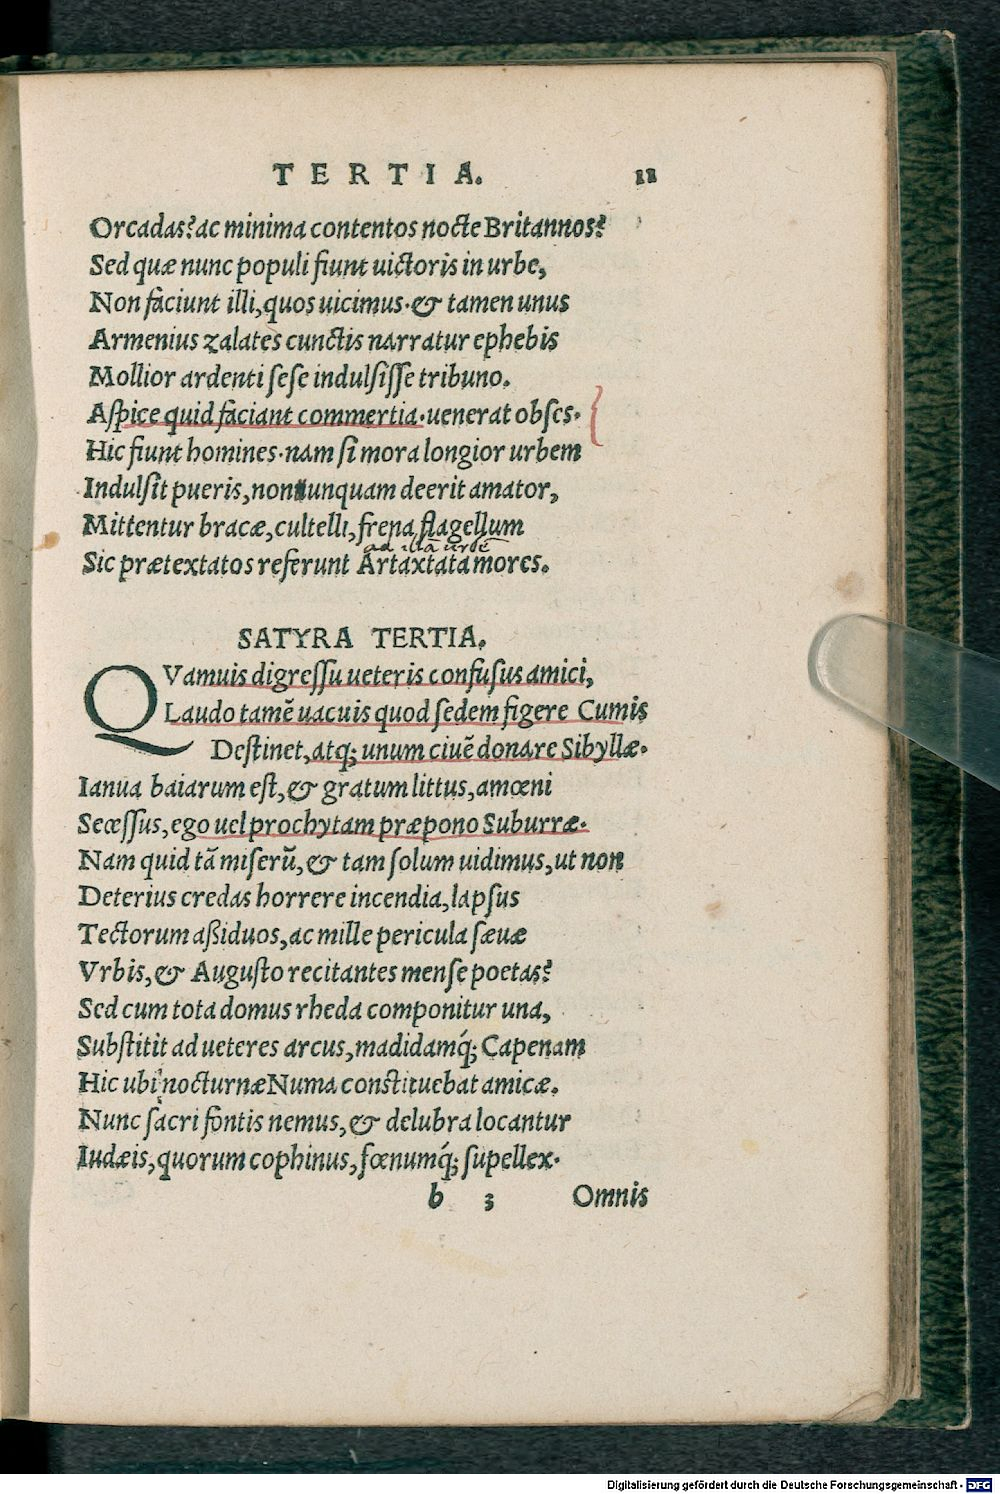 TERTIA. 11
Orcadas? ac minima contentos nocte Britannos?
Sed quæ nunc populi fiunt uictoris in urbe,
Non faciunt illi, quos uicimus. & tamen unus
Armenius zalates cunctis narratur ephebis
Mollior ardenti sese indulsisse tribuno.
Aspice quid faciant commertia. uenerat obses.
Hic fiunt homines. nam si mora longior urbem
Indulsit pueris, non unquam deerit amator,
Mittentur bracæ, cultelli, frena, flagellum
ad illā urbē
Sic prætextatos referunt Artaxtata mores.
SATYRA TERTIA.
QVamuis digressu ueteris confusus amici,
Laudo tamē uacuis quod sedem figere Cumis
Destinet, atq; unum ciuē donare Sibyllæ.
Ianua baiarum est, & gratum littus, amœni
Secessus, ego uel prochytam præpono Suburræ.
Nam quid tā miserū, & tam solum uidimus, ut non
Deterius credas horrere incendia, lapsus
Tectorum aßiduos, ac mille pericula sæuæ
Vrbis, & Augusto recitantes mense poetas?
Sed cum tota domus rheda componitur una,
Substitit ad ueteres arcus, madidamq́; Capenam
Hic ubi nocturnæ Numa constituebat amicæ.
Nunc sacri fontis nemus, & delubra locantur
Iudæis, quorum cophinus, fœnumq́; supellex.
b 3 Omnis
Digitalisierung gefördert durch die Deutsche Forschungsgemeinschaft - DFG